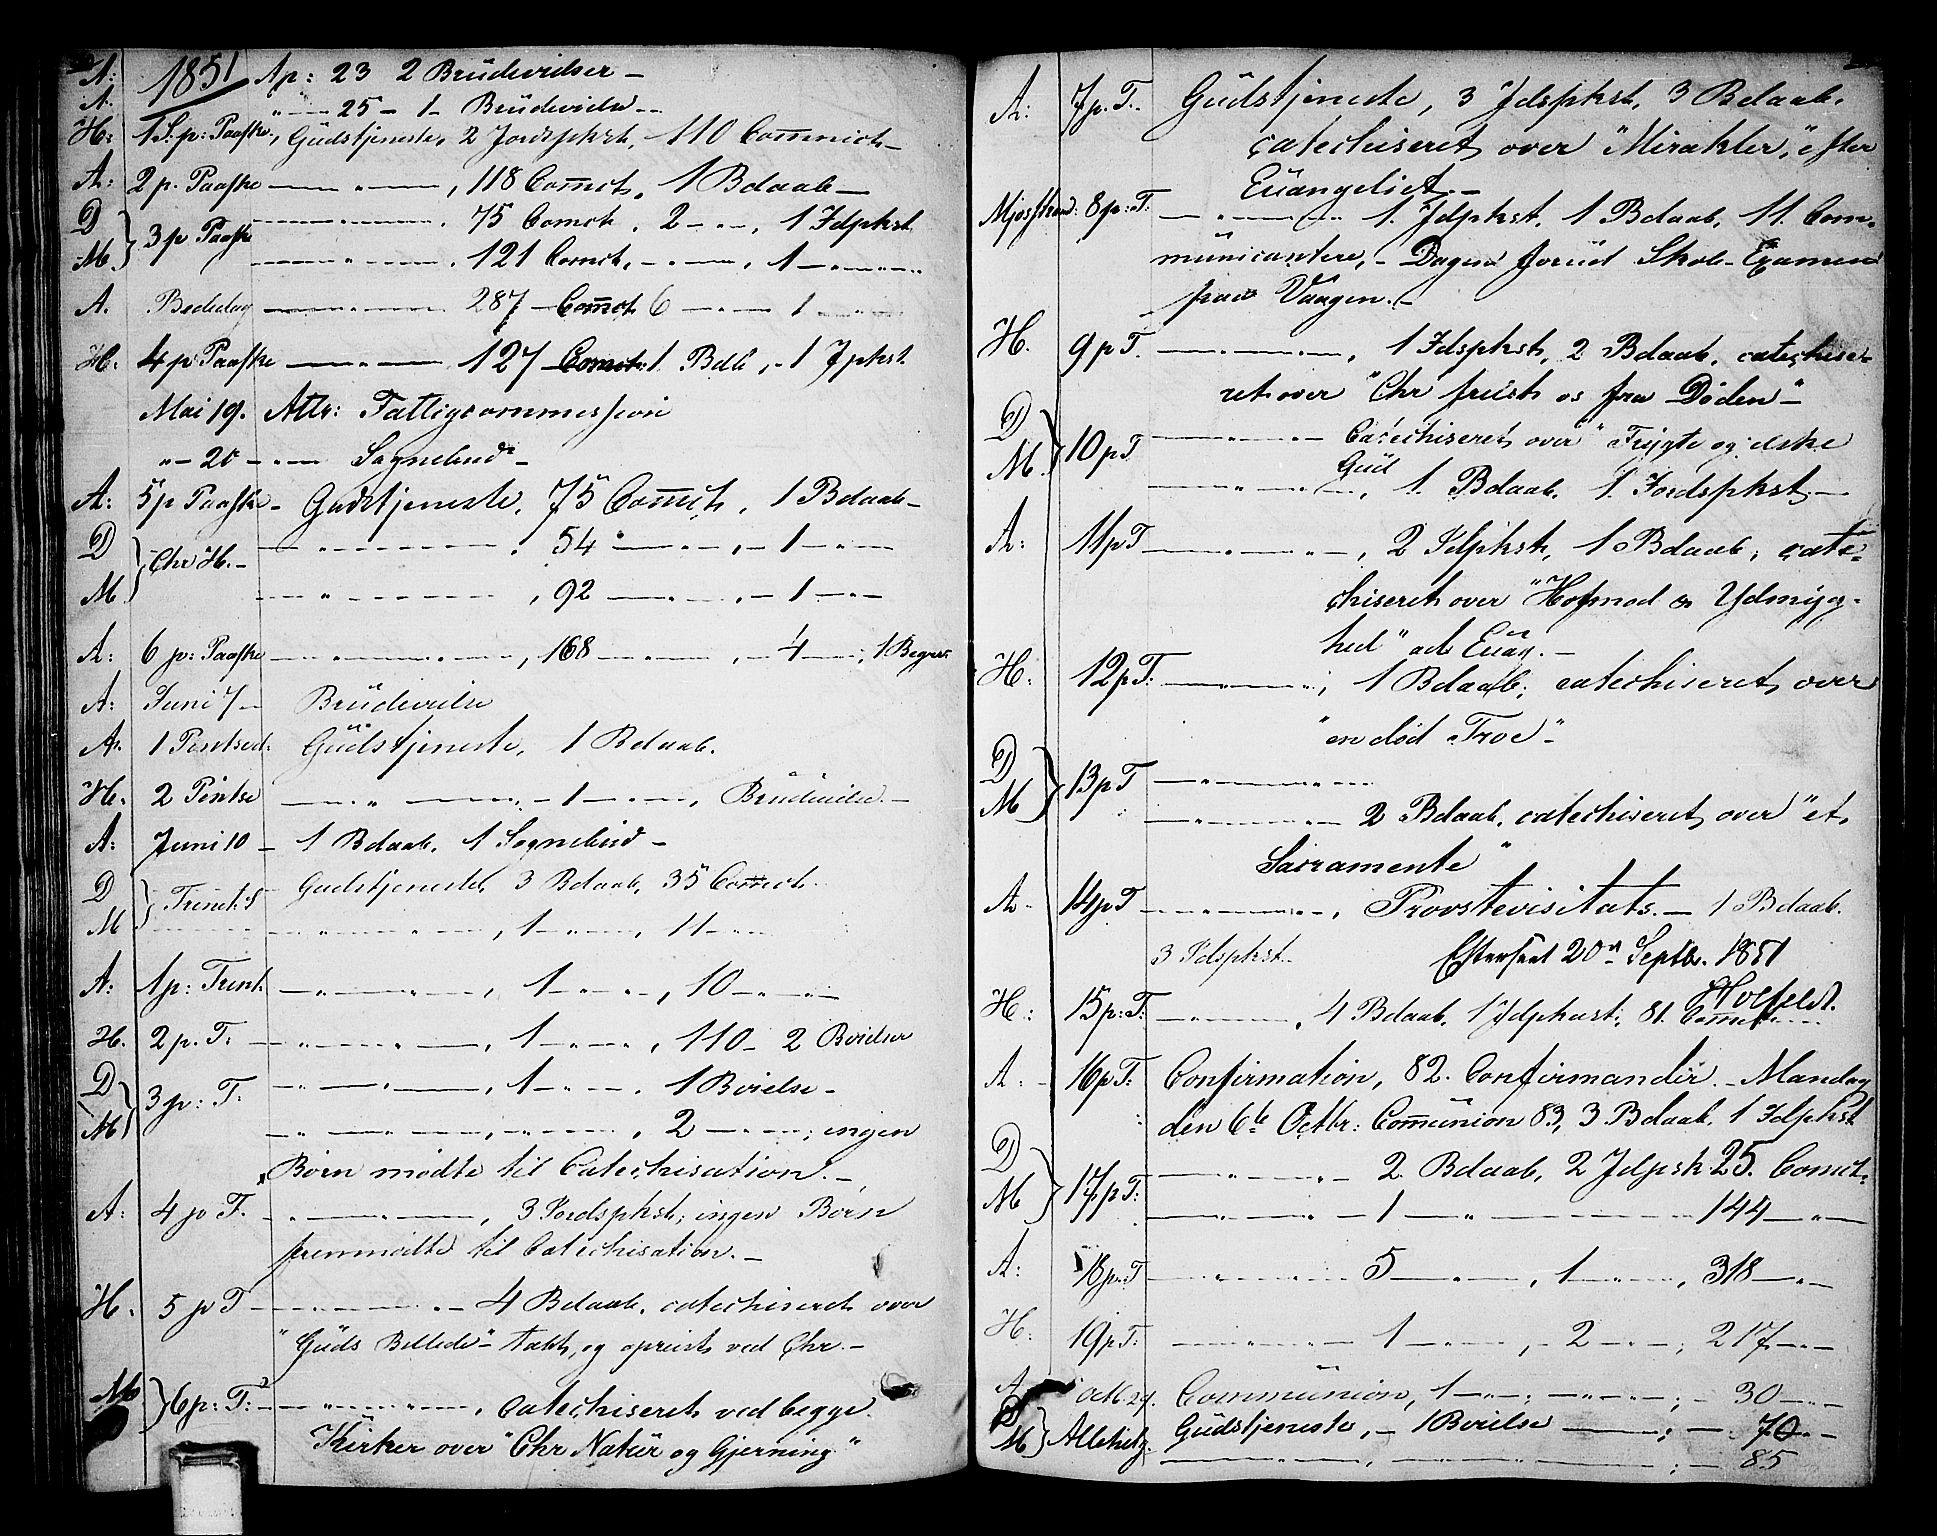 A: 1851 Ap: 23 2 Brüdevielser —
A. " — 25 – 1 – Brüdevielse --
H: 1 S. p: Paaske, Gudstjeneste, 2 Jordspkst, – 110 Commct –
A: 2 p. Paaske — " — , 118 Commct, 1 Bdaab —
D 3 p Paaske — " — . 75 Comct , 2 — " — , 1 Jdpkst
M. — " — . 121 Comct, — " — , 1 — " —
A. Bededag — " — 287 – Commct 6 — " — 1 — " —
H. 4 p: Paaske — " — 127 – Comct: 1. Bdb , – 1 Jpkst
Mai 19. Attr: Fattigcommission
" – 20 – " — Sognebud –
A: 5 p Paaske – Gudstjeneste, 75 Commct, 1 Bdaab –
D Chr H. – — " — , 54 — " — , – 1 — " —
M. — " — , 92 — " — , – 1 — " —
A: 6 p: Paaske — " — , 168 — " — , – 4 — " — , 1 Begr:
A: Juni 7 – Brüdevielse
A. 1 Pintsed: Güdstjeneste, 1 Bdaab.
H. 2 Pintse — " — , – 1 — " — , Brüdevielse. –
A: Juni 10 – 1 Bdaab, 1 Sognebud –
D Trinit: S Gudstjeneste, 3 Bdaab, 35 Comct.
M — " — , 1 — " — , 11 — " —
A: 1 p: Trint. — " — , 1 — " — , 10 — " —
H. 2 p. T: — " — , 1 — " — , 110 – 2 Bvielser
D 3 p: T. — " — , 1 — " — . 1 Bvielse –
M — " — , — " — , 2 — " — ; ingen
Børn mødte til Catechisation. –
A: 4 p T. — " — , 3 Jordspkst; ingen Børn
fremmødte til Catechisation. –
H. 5 p T — " — 4 Bdaab, catechiseret over
"Güds Billede" – tabt, og opreist ved Chr. –
M 6 p: T: — " — , Catechiseret ved begge
Kirker over "Chr Natür og Gjerning"
A: 7 p. T. Güdstjeneste, 3 Jdspkst, 3 Bdaab.
catechiseret over "Mirakler," efter
Evangeliet. –
Mjosstrand: 8 p: T: — " — 1. Jdpkst, 1 Bdaab, 11. Com-
münicantere, – Dagen forüd Skole-Examen
paa Vaagen. –
H. 9 p T. — " — , 1 Jdspkst, 2 Bdaab, catechise-
ret over "Chr friist os fra Døden" –
D 10 p T — " — Catechiseret over "Frygte og elske
Gud
M — " — , 1. Bdaab, 1. Jordspkst. —
A: 11 p T — " — , 2 Jdpkst, 1 Bdaab, cate-
chiseret over "Hofmod & Ydmyg-
hed" ad Evag. –
H: 12 p T: — " — , 1 Bdaab; catechiseret over
"en død Troe" –
D 13 p T — " —
M — " — 2 Bdaab, catechiseret over "et
Sacramente"
A. 14 p T — " — , Provstevisitats. – 1 Bdaab.
3 Jdspkst. Efterseet 20de Septbr. 1851
H: 15 p: T: — " — , 4 Bdaab, 1 Jdpkast:, 81. Comct
A: 16 p T: Confirmation, 82. Confirmander. – Mandag
den 6te Octbr: Commünion 83, 3 Bdaab, 1 Jdpkst
D 17 p T: — " — 2 Bdaab, 2 Jdpsk 25. Comct.
M — " — 1 — " — 144 — " —
A: 18 p: T — " — 5 — " — , 1 — " — , 318 — " —
H: 19 p T: — " — 1 — " — , – 2 — " — ; 217 — " —
A Octb. 29. Commünion, 1 — " — ; — " — ; – 30 — " —
D Allehelg. Güdstjeneste, – 1 Bvielse — ; — 70 — " —
M — " — , — " — ; – 85